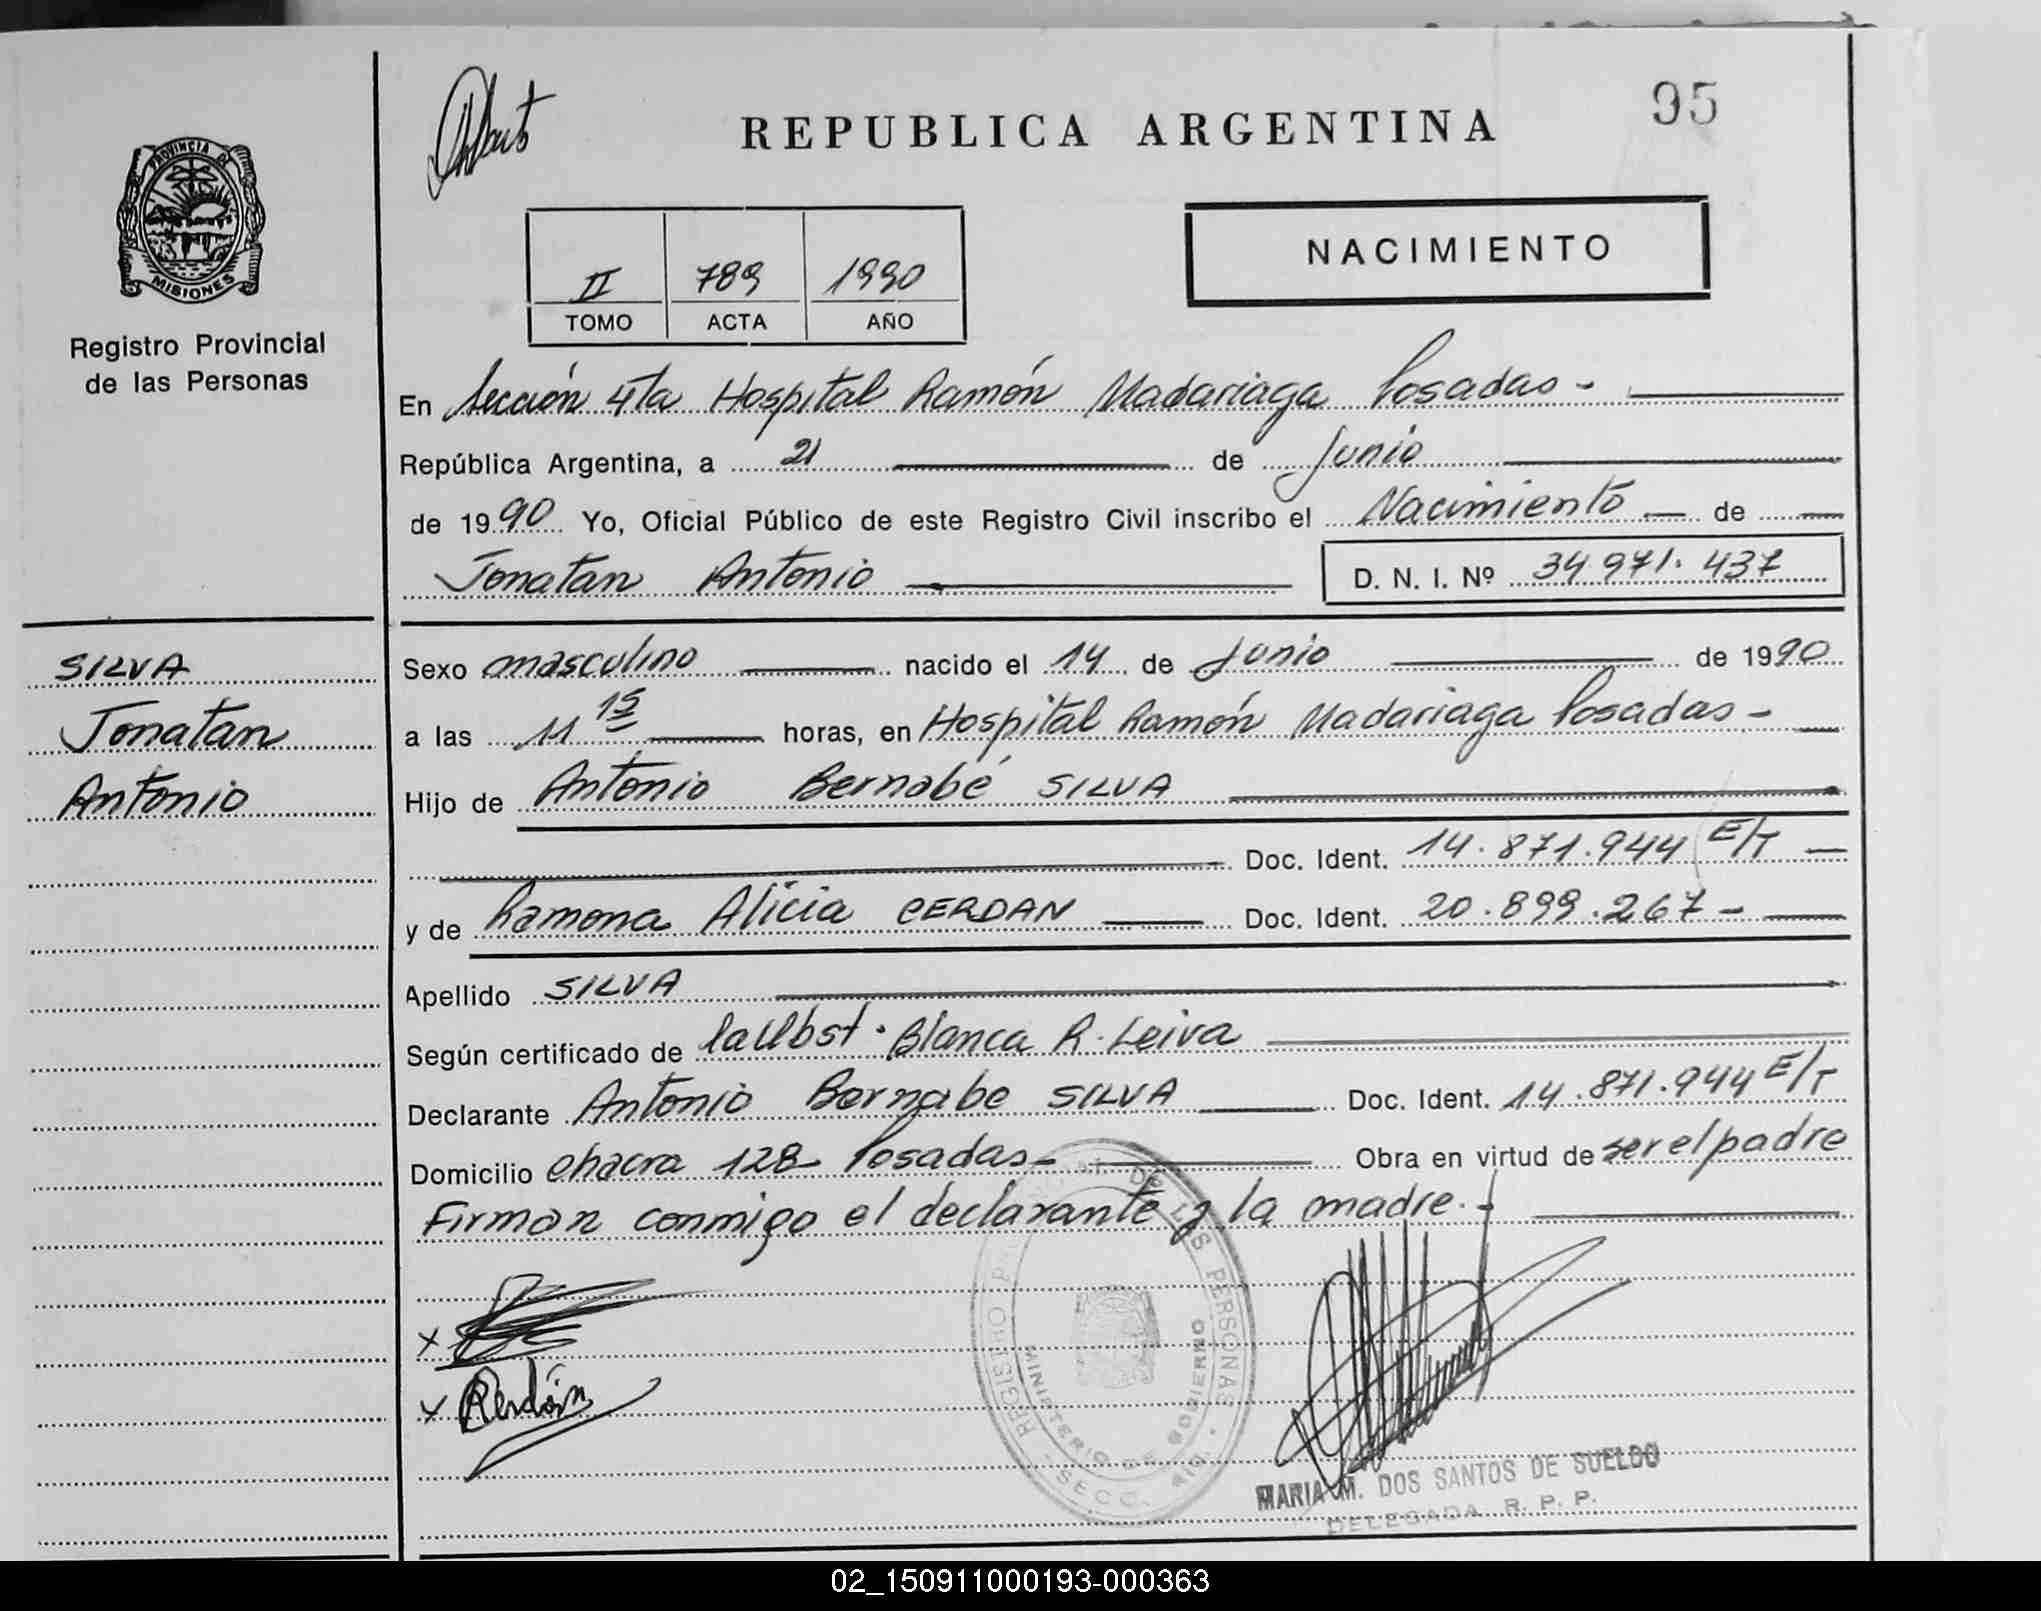 95
REPUBLICA ARGENTINA
PROVINCIA DE
MISIONES
Registro Provincial
de las Personas
II 789 1990
TOMO ACTA AÑO
NACIMIENTO
En Sección 4ta Hospital Ramón Madariaga Posadas -
República Argentina, a 21 de Junio
de 1990 Yo, Oficial Público de este Registro Civil inscribo el Nacimiento de
Jonatan Antonio D. N. I. Nº 34 971.437
SILVA
Jonatan
Antonio
Sexo masculino nacido el 14 de Junio de 1990
a las 11 15 horas, en Hospital Ramón Madariaga Posadas -
Hijo de Antonio Bernabé SILVA
Doc. Ident. 14.871.944 E/T
y de Ramona Alicia CERDAN Doc. Ident. 20.899.267 -
Apellido SILVA
Según certificado de la Obst. Blanca R. Leiva
Declarante Antonio Bernabe SILVA Doc. Ident. 14.871.944 E/T
Domicilio chacra 128 Posadas - Obra en virtud de ser el padre
Firman conmigo el declarante y la madre.-
x
x Cerdán
REGISTRO PROVINCIAL DE LAS PERSONAS
MINISTERIO DE GOBIERNO
MARIA M. DOS SANTOS DE SUELDO
DELEGADA R. P. P.
02_150911000193-000363